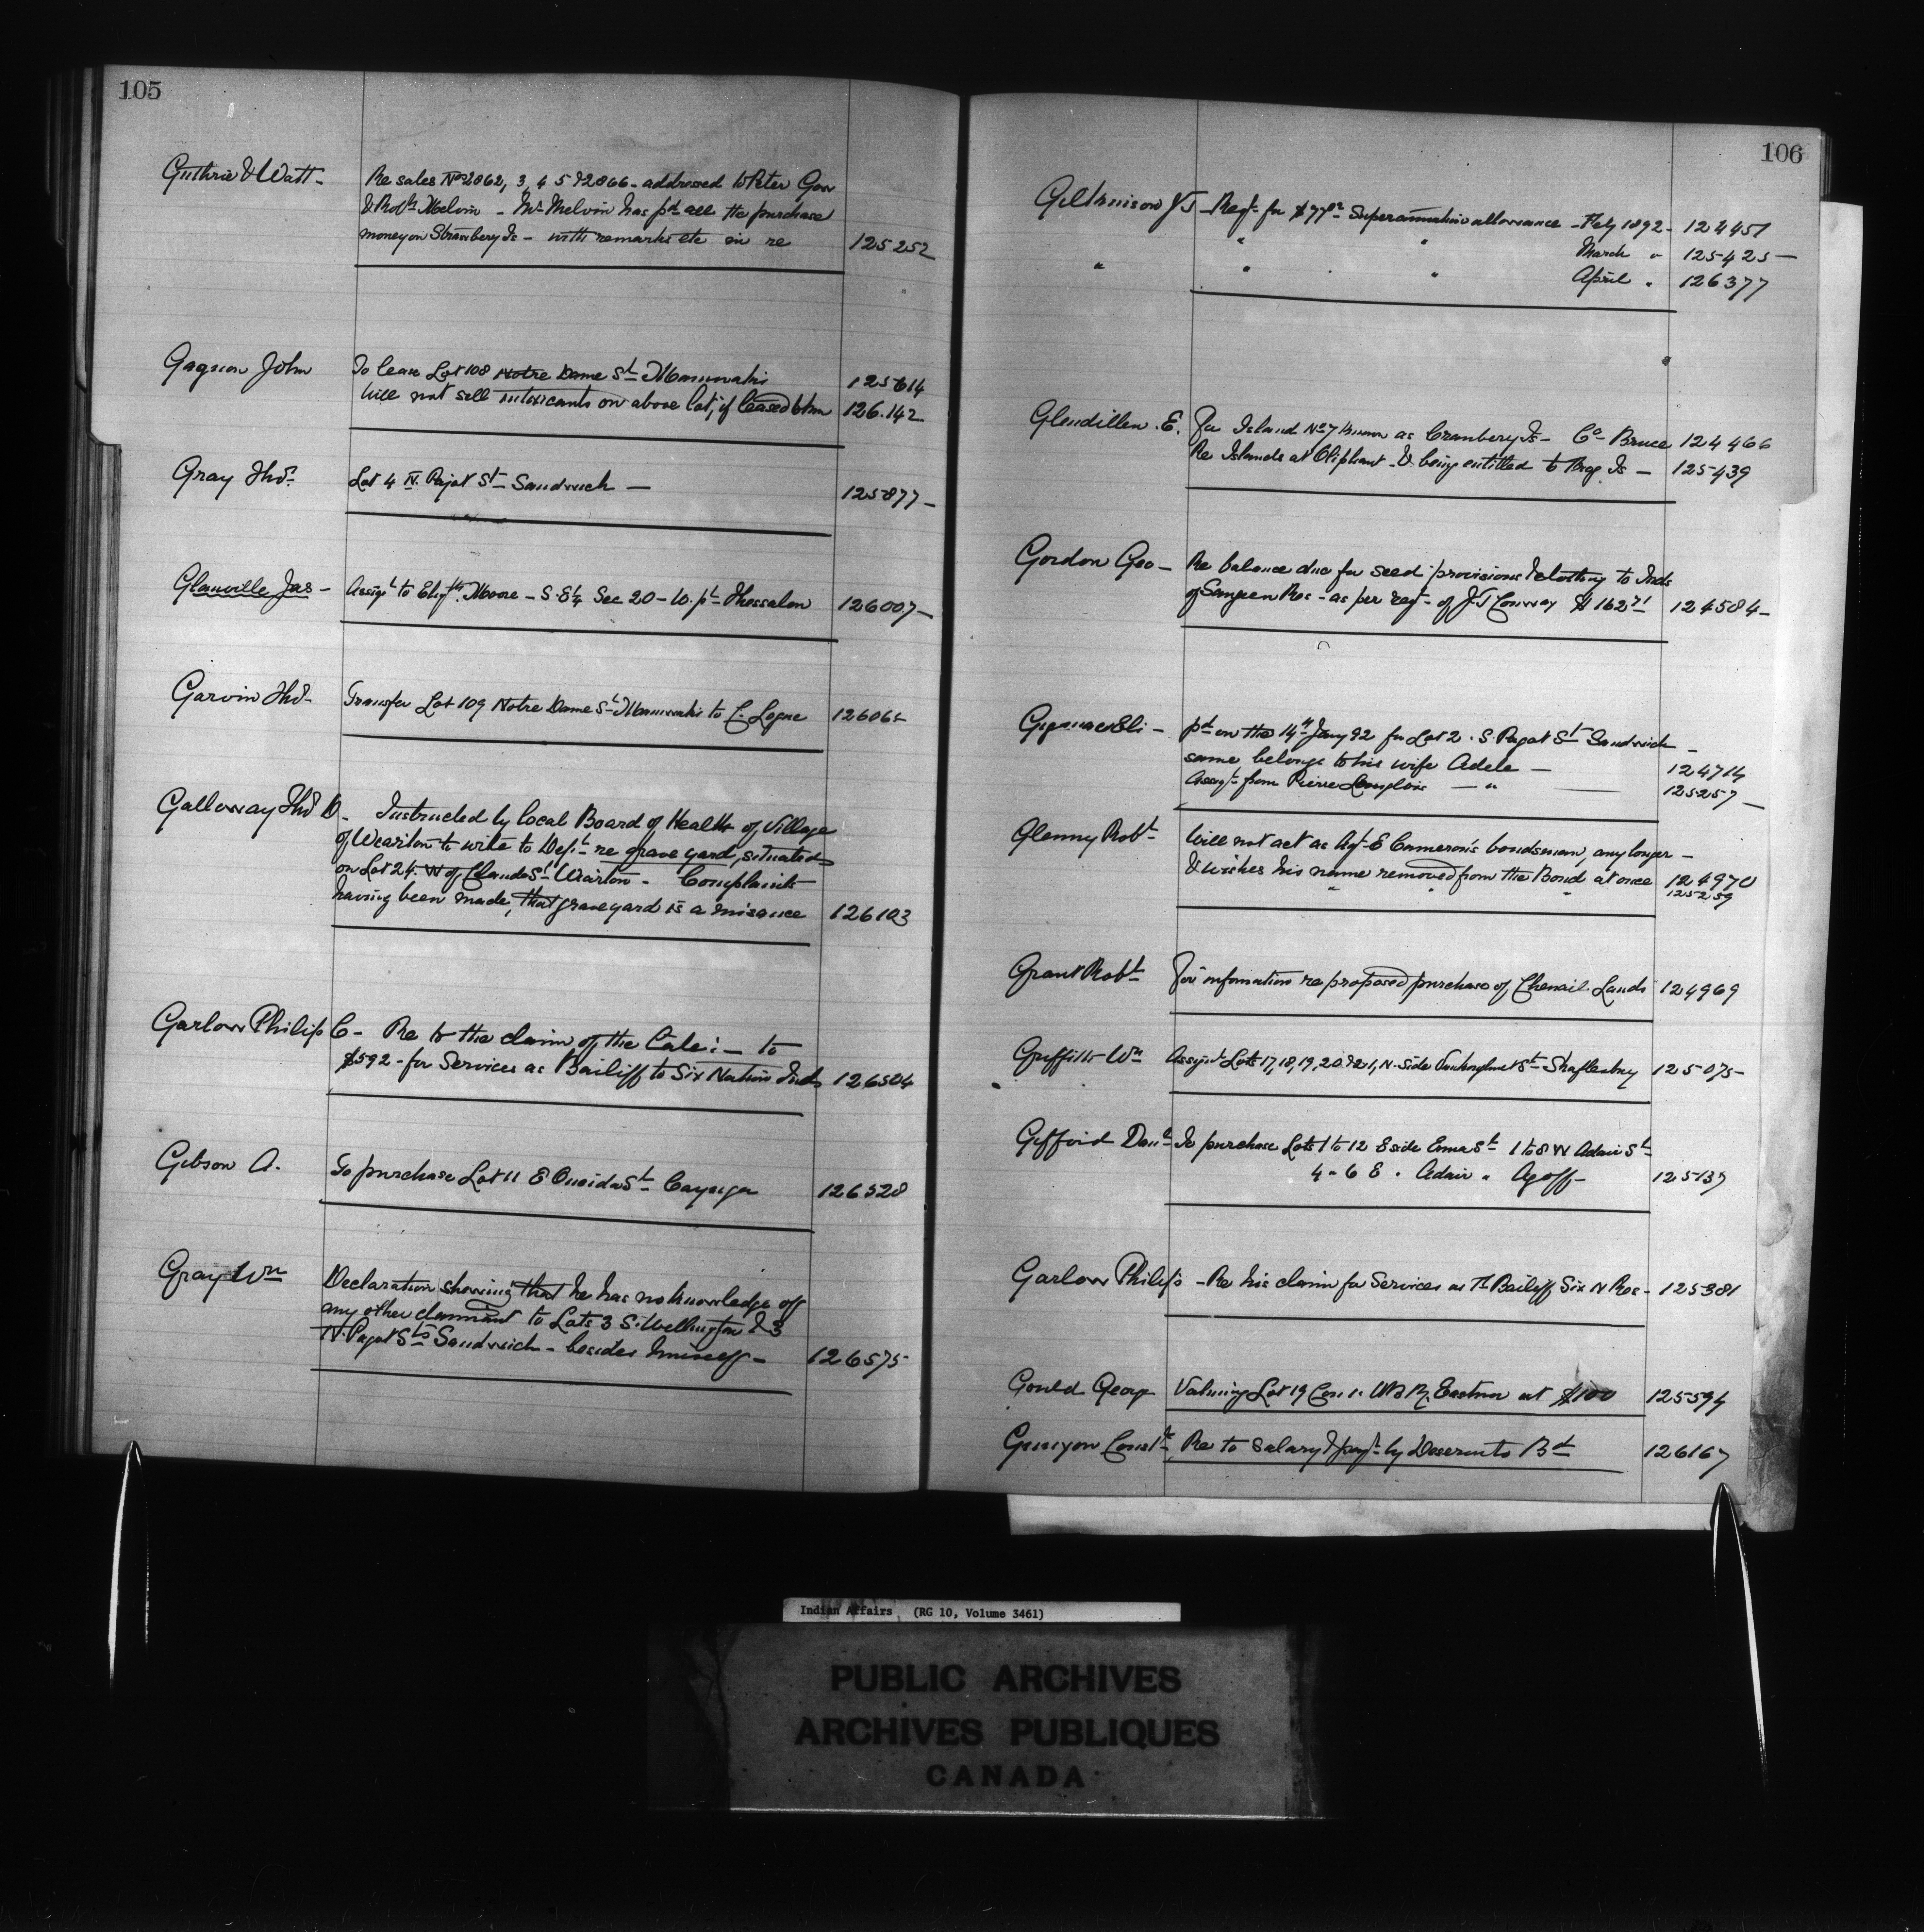 105
Guthrie & Watt - Re sales Nos 2862, 3, 4 5 & 2866 - addressed to Peter Gow
& Robt Melvin - Mr Melvin has pd all the purchase
money on Strawbery Is - with remarks etc in re 125252
Gagnon John To lease Lot 108 Notre Dame St Maniwaki 125614
Will not sell intoxicants on above lot, if leased to him 126.142
Gray Thos. Lot 4 N. Pajot St Sandwich — 125877 -
Glanville Jas - Assigt to Elizth Moore - S.E¼ Sec 20 - W. pt Thessalon 126007 -
Garvin Thos - Transfer Lot 109 Notre Dame St Maniwaki to C. Logue 126065
Galloway Thos D. Instructed by Local Board of Health of Village
of Wearton to write to Dept re grave yard, situated
on Lot 24. W of Claude St Wiarton - Complaints
having been made, that graveyard is a nuisance 126103
Garlow Philip C - Re to the claim of the Late: - to
$592 - for Services as Bailiff to Six Nation Inds 126504
Gibson A. To purchase Lot 11 E Oneida St Cayuga 126528
Gray Wm Declaration showing that he has no knowledge of
any other claimant to Lots 3 S. Wellington & 3
N. Pagot Sts Sandwich - besides himself - 126575
106
J J - Reqt for $77 Superannuation allowance - Feby 1892 - 124451
" " " March " 125425 —
" " " April " 126377
Glendillen . E. For Island No 7 known as Cranbery Is - Co Bruce 124466
Re Islands at Oliphant - & being entitled to Is - 125439
Gordon Geo - Re balance due for seed provisions & clothing to Inds
of Saugeen Res - as per reqt of J J Conway $162 71 124584 -
Gignac Eli - pd on the 14th Jany 92 for Lot 2 . S. Pagot St Sandwich -
same belongs to his wife Adele — 124714
Assigt from Pierre Langlois — " — 125257 -
Glenny Robt Will not act as Agt E Cameron's bondsman, any longer -
& wishes his name removed from the Bond at once 124970
" " " 125259
Grant Robt For information re proposed purchase of Chenail Lands 124969
Griffith Wm Assigt Lots 17, 18, 19, 20 & 21, N. Side St Shaftesbury 125075 -
Gifford Danl To purchase Lots 1 to 12 E side Emma St 1 to 8 W Adair St
4 " 6 E " Adair " Agoff - 125137
Garlow Philip - Re his claim for Services as Bailiff Six N Res - 125381
Gould George Valuing Lot 19 Con 1. W B R. Eastnor at $100 125594
Gunyon Re to Salary & payt by Deseronto Bd 126167
Indian Affairs (RG 10, Volume 3461)
PUBLIC ARCHIVES
ARCHIVES PUBLIQUES
CANADA